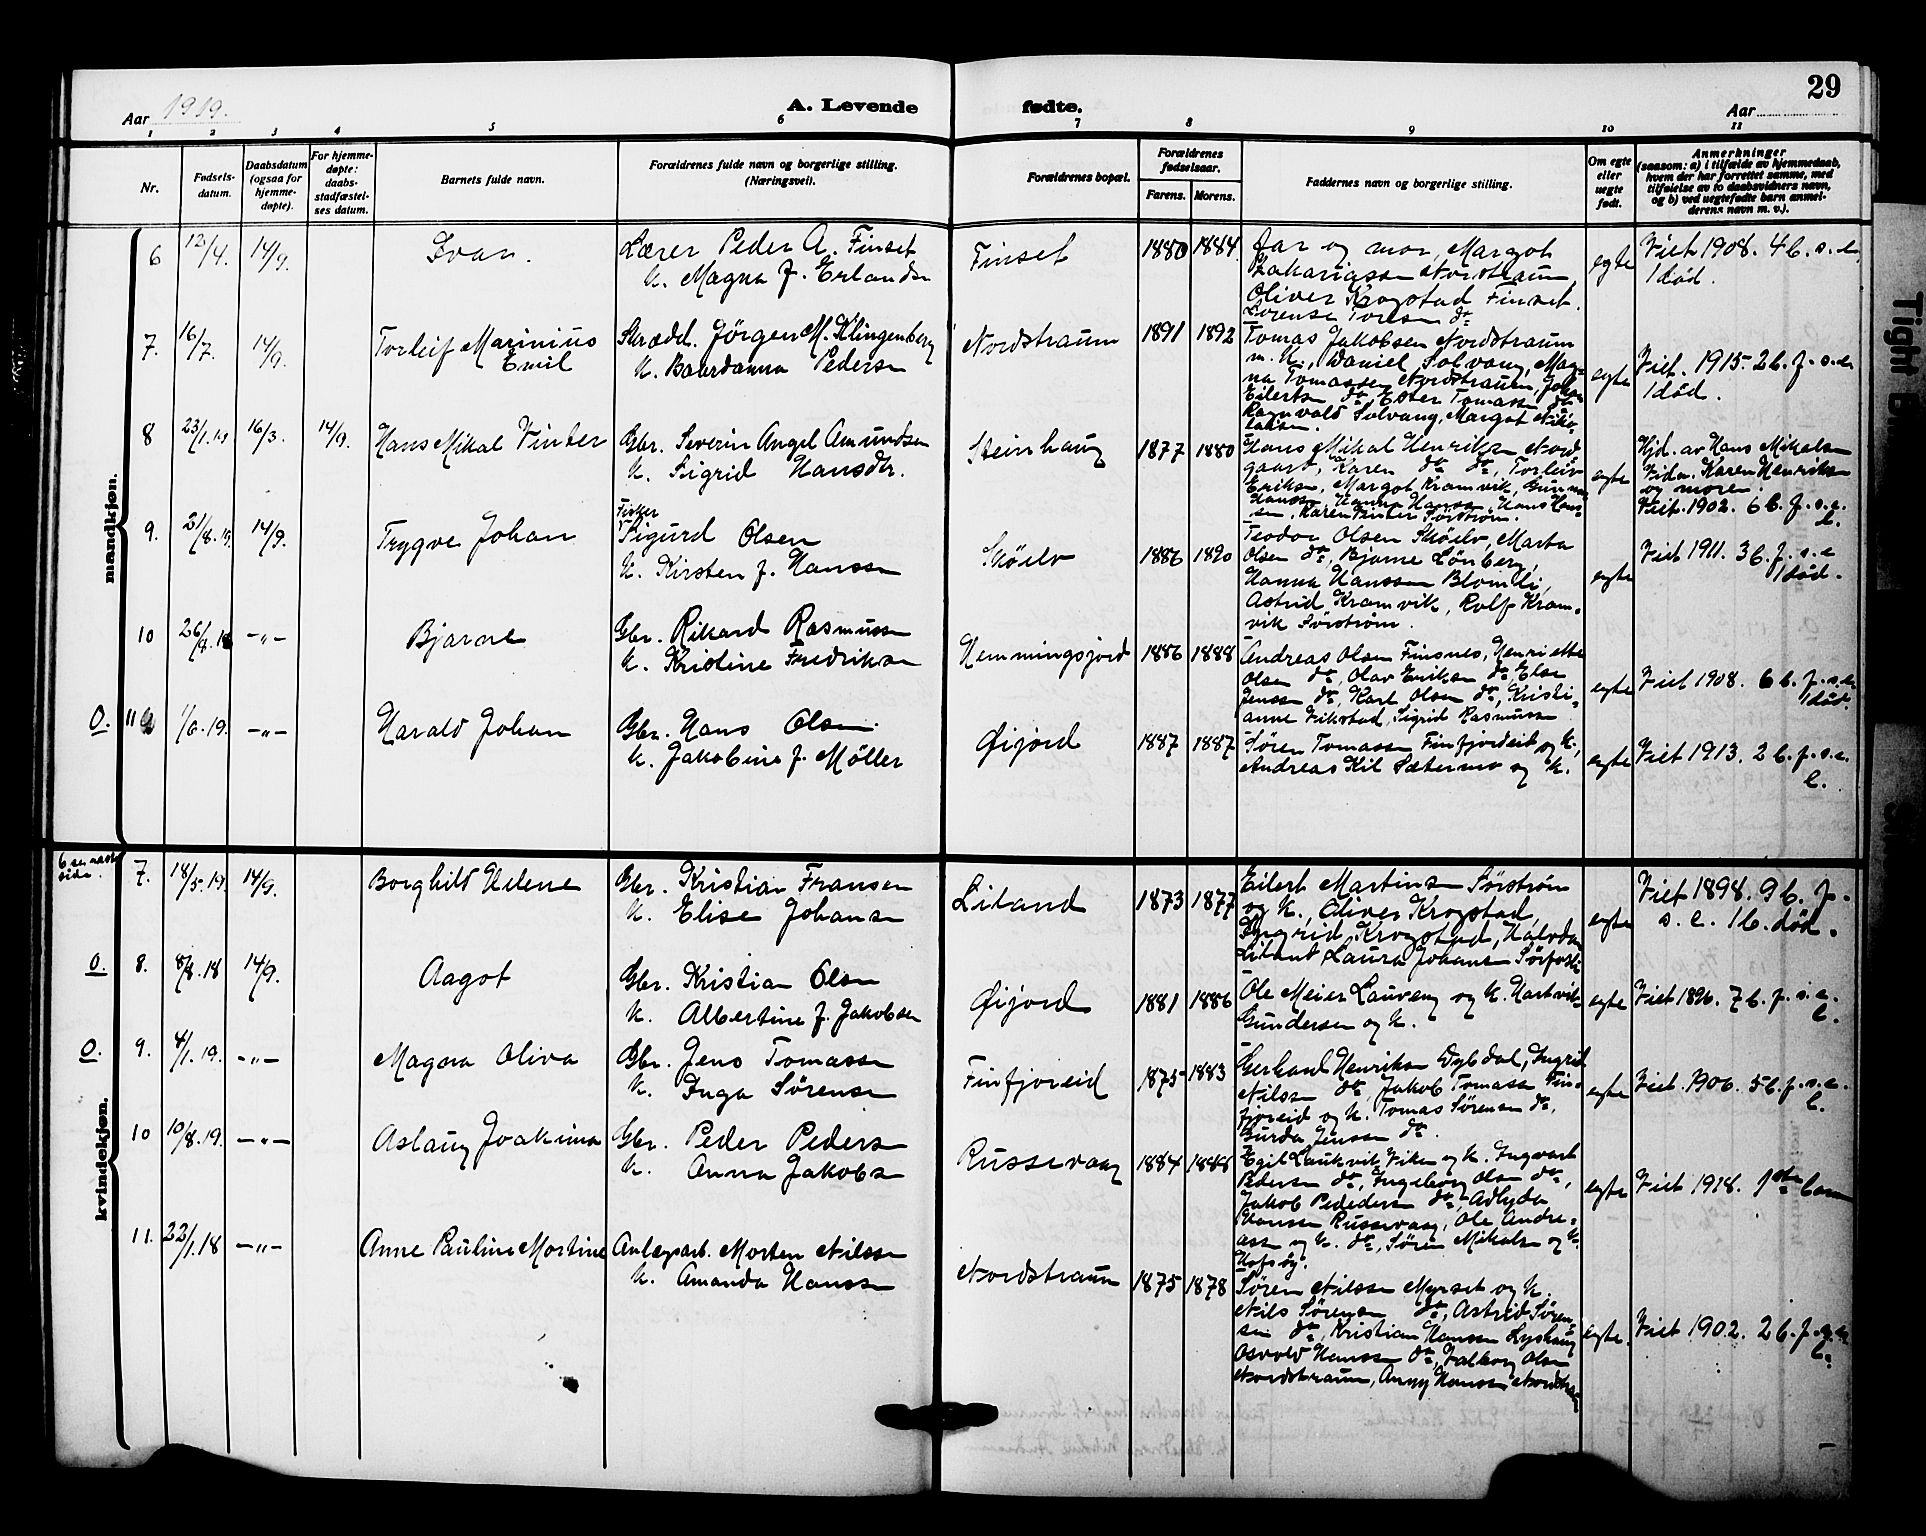 29
Aar 1919.
A. Levende fødte.
Aar
1 2 3 4 5 6 7 8 9 10 11
Nr.
Fødsels-
datum.
Daabsdatum
(ogsaa for
hjemme-
døpte).
For hjemme-
døpte:
daabs-
stadfæstel-
ses datum.
Barnets fulde navn.
Forældrenes fulde navn og borgerlige stilling.
(Næringsvei).
Forældrenes bopæl.
Forældrenes
fødselsaar.
Farens. Morens.
Faddernes navn og borgerlige stilling.
Om egte
eller
uegte
født.
Anmerkninger
(saasom: a) i tilfælde av hjemmedaab,
hvem der har forrettet samme, med
tilføielse av to daabsvidners navn,
og b) ved uegtefødte barn anmel-
derens navn m. v.).
mandkjøn.
6 12/4. 14/9. Ivar.
Lærer Peder A. Finset
K. Magna f. Erlandsn
Finset 1880 1884
Far og mor, Margot
Zakariassen Nordstraum
Oliver Krogstad Finset.
Lorense Toresen do
egte
Viet 1908. 4 b. s. e.
1 død.
7. 16/7. 14/9. Torleif Marinius
Emil
Skrædd. Jørgen M. Klingenberg
K. Baardanna Pedersn
Nordstraum 1891 1892
Tomas Jakobsen Nordstraum
m. K., Daniel Solvang, Mag-
na Tomassen Nordstraum, Johan
Eilertsn do, Ester Tomassn do
Ragnvald Solvang, Margot Niko-
laisen.
egte
Viet. 1915. 2 b. f. s. e.
1 død.
8 23/1.19 16/3. 14/9. Hans Mikal Vinter
Gbr. Severin Angel Amundsen
K. Sigrid Hansdtr.
Steinhaug 1877 1880
Hans Mikal Henriksn Nord-
gaard, Karen do do, Torleiv
Eriksen, Margot Kramvik, Gunnar
Hanssn, Hanna Hanssn, Hans Hans-
sen, Karen Vinter Sørstrøm.
egte
Hjd. av Hans Mikalsen
Vidn. Karen Henriksn
og moren.
Viet. 1902. 6 b. f. s. e.
l.
9. 21/8.19. 14/9. Trygve Johan
Fisker
Sigurd Olsen
K. Kirsten f. Hanssn
Skøelv 1886 1890
Teodor Olsen Skøelv, Marta
Olsen do, Bjarne Lønberg,
Hanna Hanssen Blomli,
Astrid Kramvik, Rolf Kram-
vik Sørstrøm.
egte
Viet 1911. 3 b. f. s. e
1 død.
10 -"- Bjarne
Gbr. Rikard Rasmussn
K. Kristine Fredriksn
Hemmingsjord 1886 1888
Andreas Olsen Finsnes, Henriette
Olsen do, Olav Eriksn do, Else
Jenssn do, Karl Olsen do, Kristi-
anne Vikstad, Sigrid Rasmussn
egte
Viet 1908. 6 b. f. s. e.
1 død.
O. 11 1/6.19. -"- Harald Johan
Gbr. Hans Olsen.
K. Jakobine f. Møller
Øijord 1887 1887
Søren Tomassn Finfjordeid og K.,
Andreas Kil Sætermo og K.
egte
Viet 1913. 2 b. f. s. e.
l.
kvindekjøn.
6 se næste
side.
7. 18/5.19. 14/9. Borghild Helene
Gbr. Kristian Fransen
K. Elise Johansn
Liland 1873 1877
Eilert Martinsn Sørstrøm
og K., Oliver Krogstad,
Ingrid Krogstad, Halvdan
Liland Laura Johansn
egte
Viet 1898. 9 b. f.
s. e. 1 b. død.
O. 8. 8/8.18 14/9. Aagot
Gbr. Kristian Olsn
K. Albertine f. Jakobsen
Øijord 1881 1886
Ole Meier Laureng og K. Hartvik
Gundersen og K.
egte
Viet 1896. 7 b. f. s. e.
l.
O. 9. 4/1.19. -"- Magna Oliva
Gbr. Jens Tomassn
K. Inga Sørensn
Finfjoreid 1875 1883
Gerhard Henriksn Dybdal, Ingrid
Nilssn do, Jakob Tomassn Fin-
fjoreid og K. Tomas Sørensen do,
Burda Jenssn do.
egte
Viet. 1906. 5 b. f. s. e.
l.
10 10/8.19. -"- Aslaug Joakima
Gbr. Peder Pedersn
K. Anna Jakobsn
Russevaag 1884 1888
Egil Laukvik Viken og K. Ingvart
Pedersen do, Ingeborg Olsn do,
Jakob Pedersen do, Adlyda
Hanssn Russevaag, Ole Andre-
assn og K. do, Søren Mikalsn og K.
Hofsøy.
egte
Viet 1918. 1ste barn
11. 22/1.18 -"- Anne Pauline Mortine
Anlægsarb. Morten Nilssn
K. Amanda Hanssn
Nordstraum 1875 1878
Søren Nilssn Myrset og K.
Nils Sørensen do, Astrid Søren-
sen do, Kristian Hanssn Lyshaug
Osvald Hanssn do, Valborg Olsn
Nordstraum, Anny Hanssn Nordstraum
egte.
Viet 1902. 2 b. f. s. e.
l.